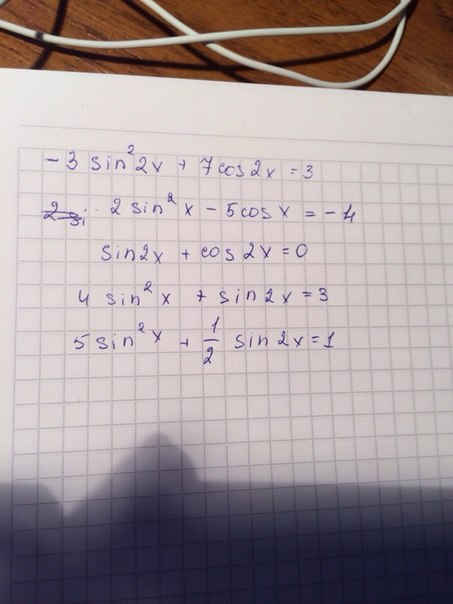 - 3 sin² 2x + 7 cos 2x = 3
2 sin² x - 5 cos x = - 4
sin 2x + cos 2x = 0
4 sin² x + sin 2x = 3
5 sin² x + 1/2 sin 2x = 1